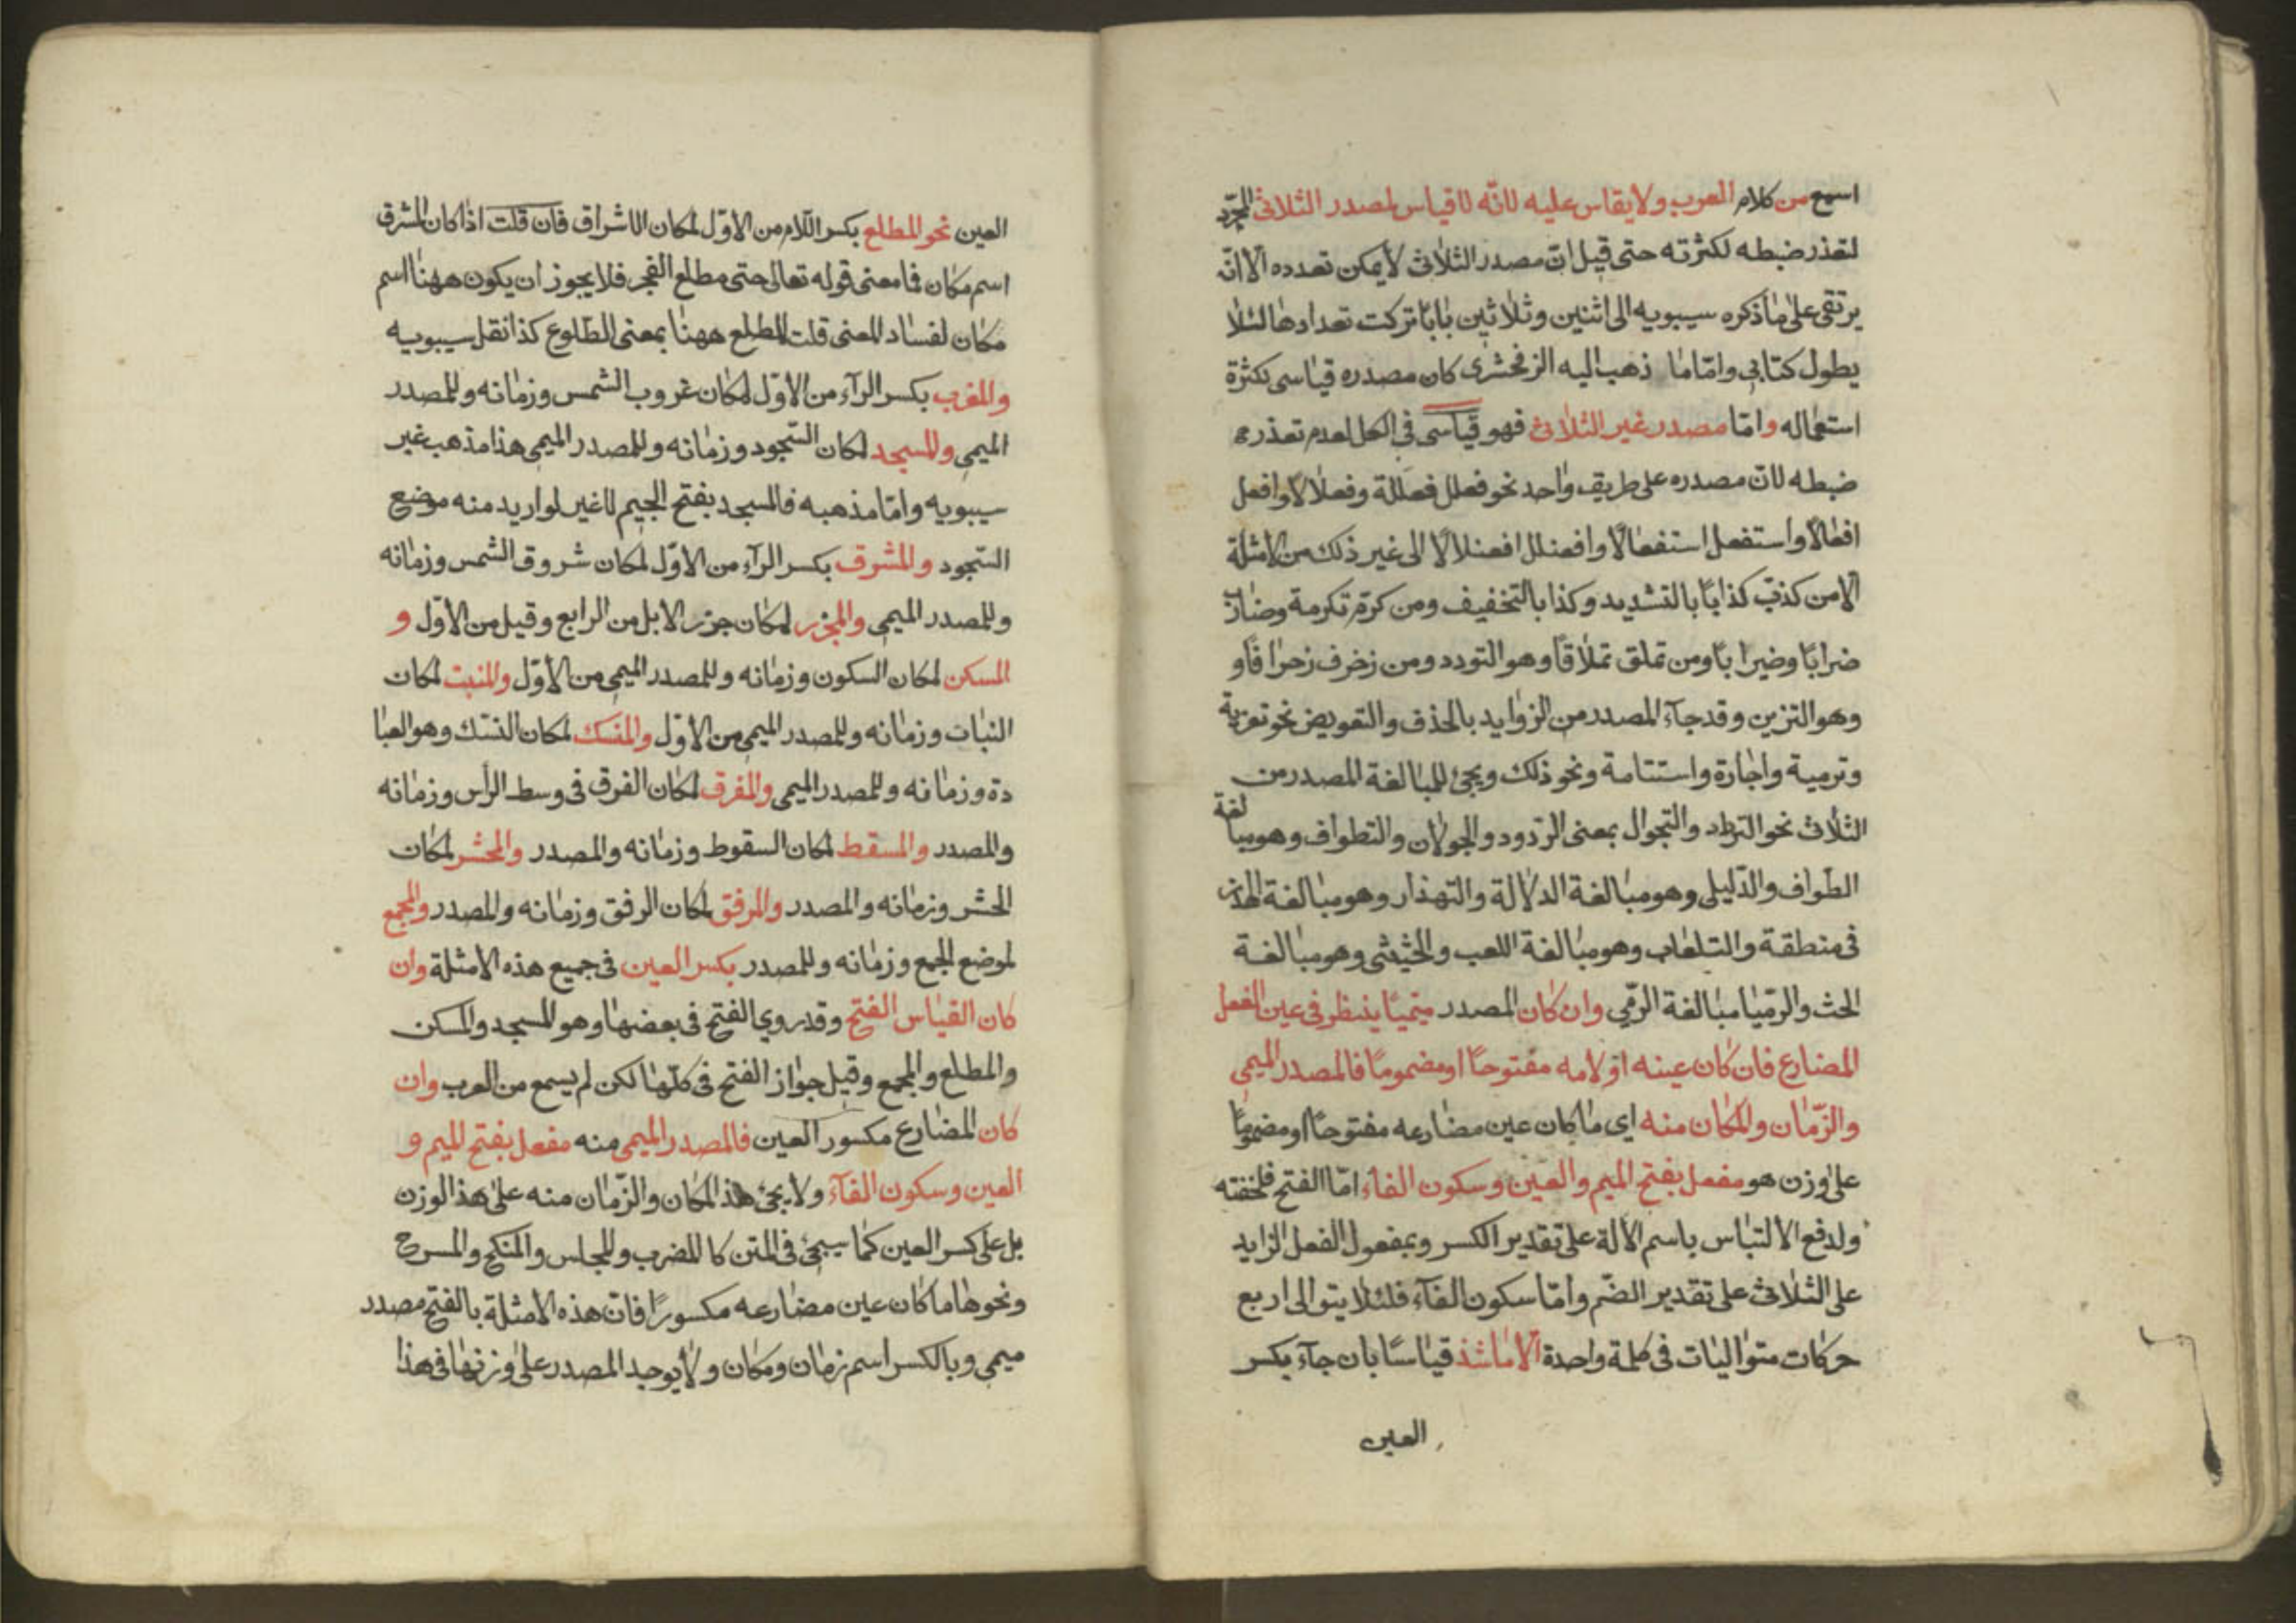 اسمع من كلام العرب ولا يقاس عليه لانّه لا قياس لمصدر الثلاثى المجرّد
لتعذر ضبطه لكثرته حتى قيل انّ مصدر الثلاثى لا يمكن تعدده الّا انّه
يرتقى على ما ذكره سيبويه الى اثنين وثلاثين بابًا تركت تعدادها لئلا
يطول كتابي وامّا ما ذهب اليه الزمخشرى كان مصدره قياسى لكثرة
استعماله وامّا مصدر غير الثلاثى فهو قياسى فى الكل لعدم تعذر
ضبطه لانّ مصدره على طريق واحد نحو فعلل فعللة وفعلالًا وافعل
افعالًا واستفعل استفعالًا وافعنلل افعنلالًا الى غير ذلك من الامثلة
الّا من كذّب كذابًا بالتشديد وكذا بالتخفيف ومن كرّم تكرمة وضارب
ضرابًا وضيرابًا ومن تملق تملاقًا وهو التودد ومن زخرف زحرافًا و
وهو التزين وقد جآء المصدر من الزوايد بالحذف والتعويض نحو تعزية
وترمية واجازة واستنامة ونحو ذلك ويجئ للمبالغة المصدر من
الثلاثى نحو التزداد والتجوال بمعنى الردود والجولان والتطواف وهو مبالغة
الطواف والدّليلى وهو مبالغة الدلالة والتهذار وهو مبالغة الهذر
فى منطقة والتلعاب وهو مبالغة اللعب والحثيثى وهو مبالغة
الحث والرّميا مبالغة الرّمي وان كان المصدر ميميًا ينظر فى عين الفعل
المضارع فان كان عينه او لامه مفتوحًا او مضمومًا فالمصدر الميمى
والزّمان والمكان منه اى ما كان عين مضارعه مفتوحًا او مضمومًا
على وزن هو مفعل بفتح الميم والعين وسكون الفاء امّا الفتح فلخفته
ولدفع الالتباس باسم الالة على تقدير الكسر وبمفعول الفعل الزايد
على الثلاثى على تقدير الضّم وامّا سكون الفآء فلئلا يتوالى اربع
حركات متواليات فى كلمة واحدة الّا ما شذ قياسًا بان جآء بكسر
العين
العين نحو المطلع بكسر اللّام من الاوّل لمكان الاشراق فان قلت اذا كان المشرق
اسم مكان فما معنى قوله تعالى حتى مطلع الفجر فلا يجوز ان يكون ههنا اسم
مكان لفساد المعنى قلت المطلع ههنا بمعنى الطّلوع كذا نقل سيبويه
والمغرب بكسر الرآء من الاوّل لمكان غروب الشمس وزمانه وللمصدر
الميمي والمسجد لمكان السّجود وزمانه وللمصدر الميمي هذا مذهب غير
سيبويه وامّا مذهبه فالمسجد بفتح الجيم لا غير لو اريد منه موضع
السّجود والمشرق بكسر الرآء من الاوّل لمكان شروق الشمس وزمانه
وللمصدر الميمي والمجزر لمكان جزر الابل من الرابع وقيل من الاوّل و
المسكن لمكان السكون وزمانه وللمصدر الميمي من الاوّل والمنبت لمكان
النبات وزمانه وللمصدر الميمي من الاوّل والمنسك لمكان النسّك وهو العبا
دة وزمانه وللمصدر الميمى والمفرق لمكان الفرق فى وسط الرأس وزمانه
والمصدر والمسقط لمكان السقوط وزمانه والمصدر والمحشر لمكان
الحشر وزمانه والمصدر والمرفق لمكان الرفق وزمانه والمصدر والمجمع
لموضع الجمع وزمانه وللمصدر بكسر العين فى جميع هذه الامثلة وان
كان القياس الفتح وقد روي الفتح فى بعضها وهو المسجد والمسكن
والمطلع والمجمع وقيل جواز الفتح فى كلّها لكن لم يسمع من العرب وان
كان المضارع مكسور العين فالمصدر الميمى منه مفعل بفتح الميم و
العين وسكون الفآء ولا يجئ هذ المكان والزّمان منه على هذ الوزن
بل على كسر العين كما سيجئ فى المتن كا للمضرب والمجلس والمنكح والمسرح
ونحوها ما كان عين مضارعه مكسورًا فانّ هذه الامثلة بالفتح مصدر
ميمي وبالكسر اسم زمان ومكان ولا يوجد المصدر على وزنها فى هذا